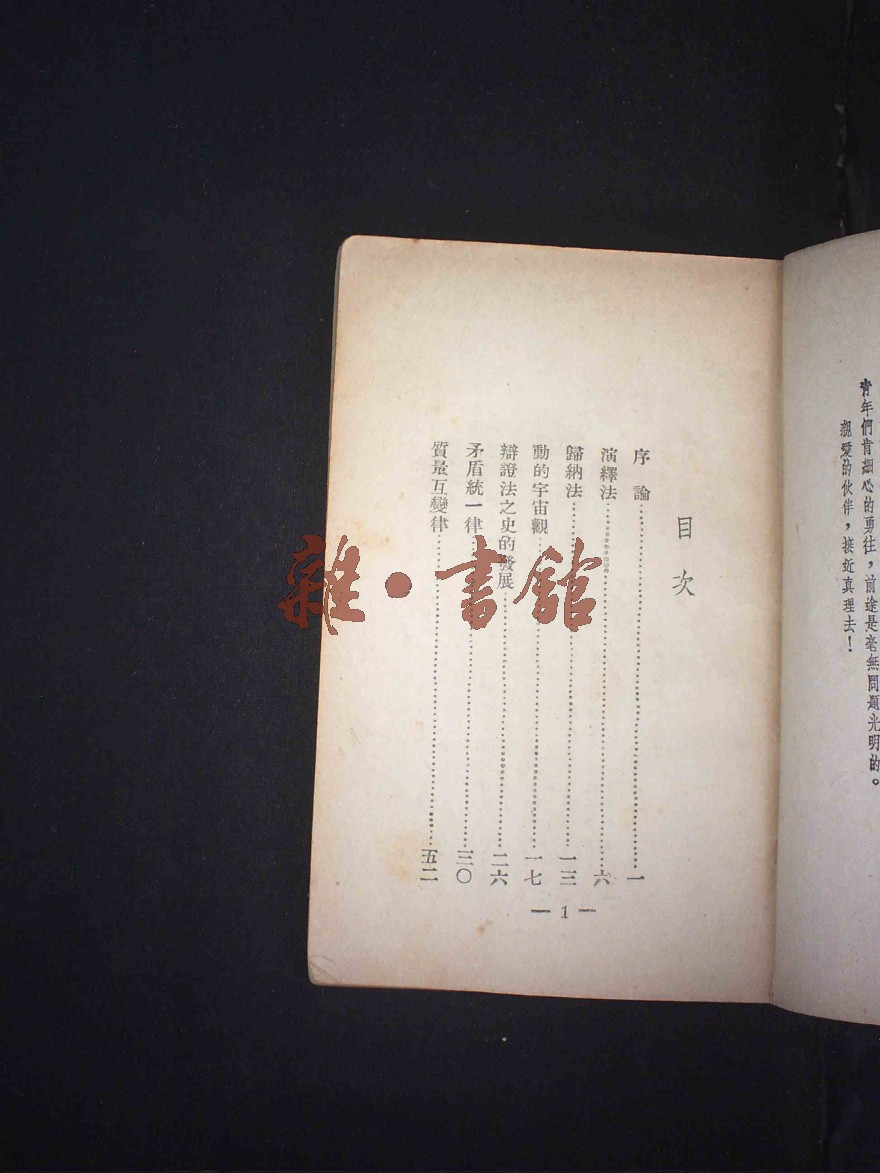 青年們肯細心的勇往，前途是毫無問題光明的。
親愛的伙伴，接近真理去！
目次
序論……一
演繹法……六
歸納法……一三
動的宇宙觀……一七
辯證法之史的發展……二六
矛盾統一律……三〇
質量互變律……五二
— 1 —
雜·書館